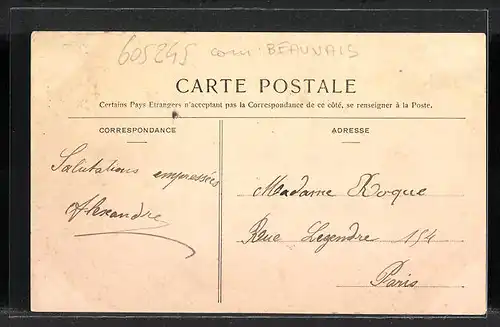 605245 com: BEAUVAIS
CARTE POSTALE
Certains Pays Etrangers n'acceptant pas la Correspondance de ce côté, se renseigner à la Poste.
CORRESPONDANCE
Salutations empressées
Alexandre
ADRESSE
Madame Roque
Rue Legendre 154
Paris